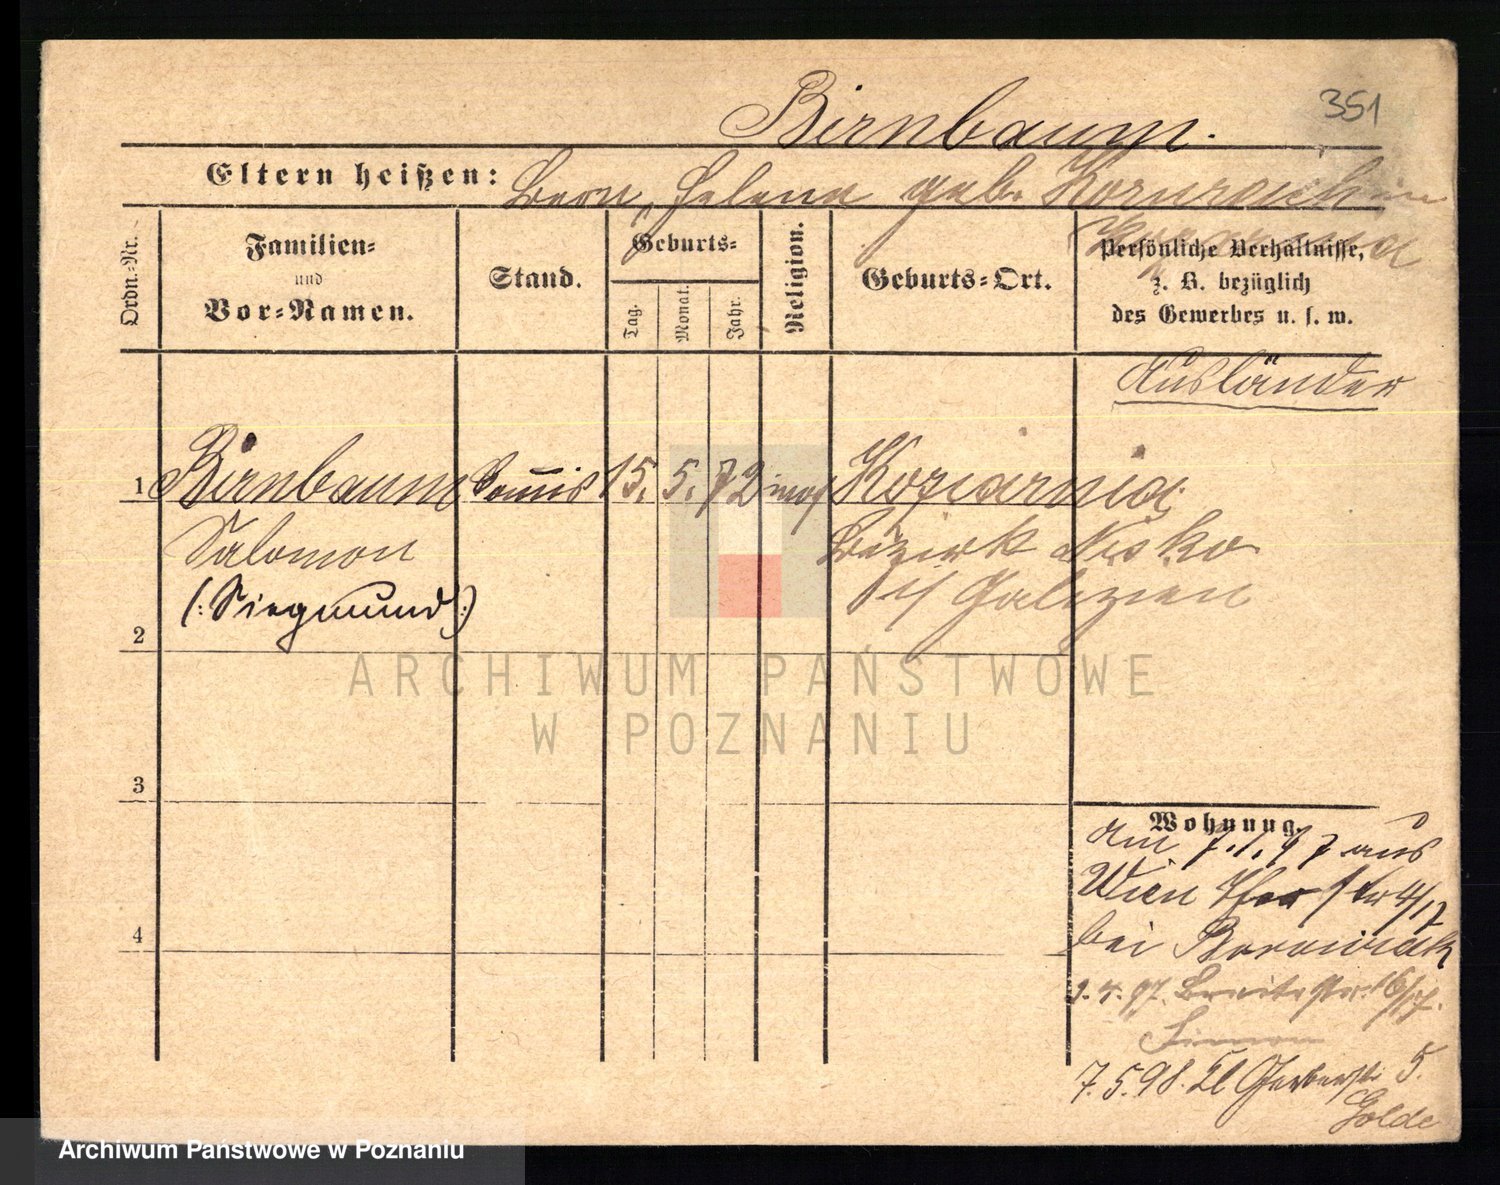 351
Birnbaum.
Eltern heißen: Bern, Helena geb.
Ordn.-Nr.
Familien-
und
Vor-Namen.
Stand.
Geburts-
Tag.
Monat.
Jahr.
Religion.
Geburts-Ort.
Persönliche Verhältnisse,
z. B. bezüglich
des Gewerbes u. s. w.
Ausländer
1 Birnbaum Commis 15. 5. 72 mos Koziarnia
Salomon Bezirk Nisko
(:Siegmund:) i/ Galizien
2
3
4
Wohnung.
Am 7.1.97 aus
Wien 4/17
bei Borowiak
3.4.97. Breitestr. 16/17.
Simon
7.5.98. Kl Gerberstr 5.
Golde
ARCHIWUM PAŃSTWOWE
W POZNANIU
Archiwum Państwowe w Poznaniu